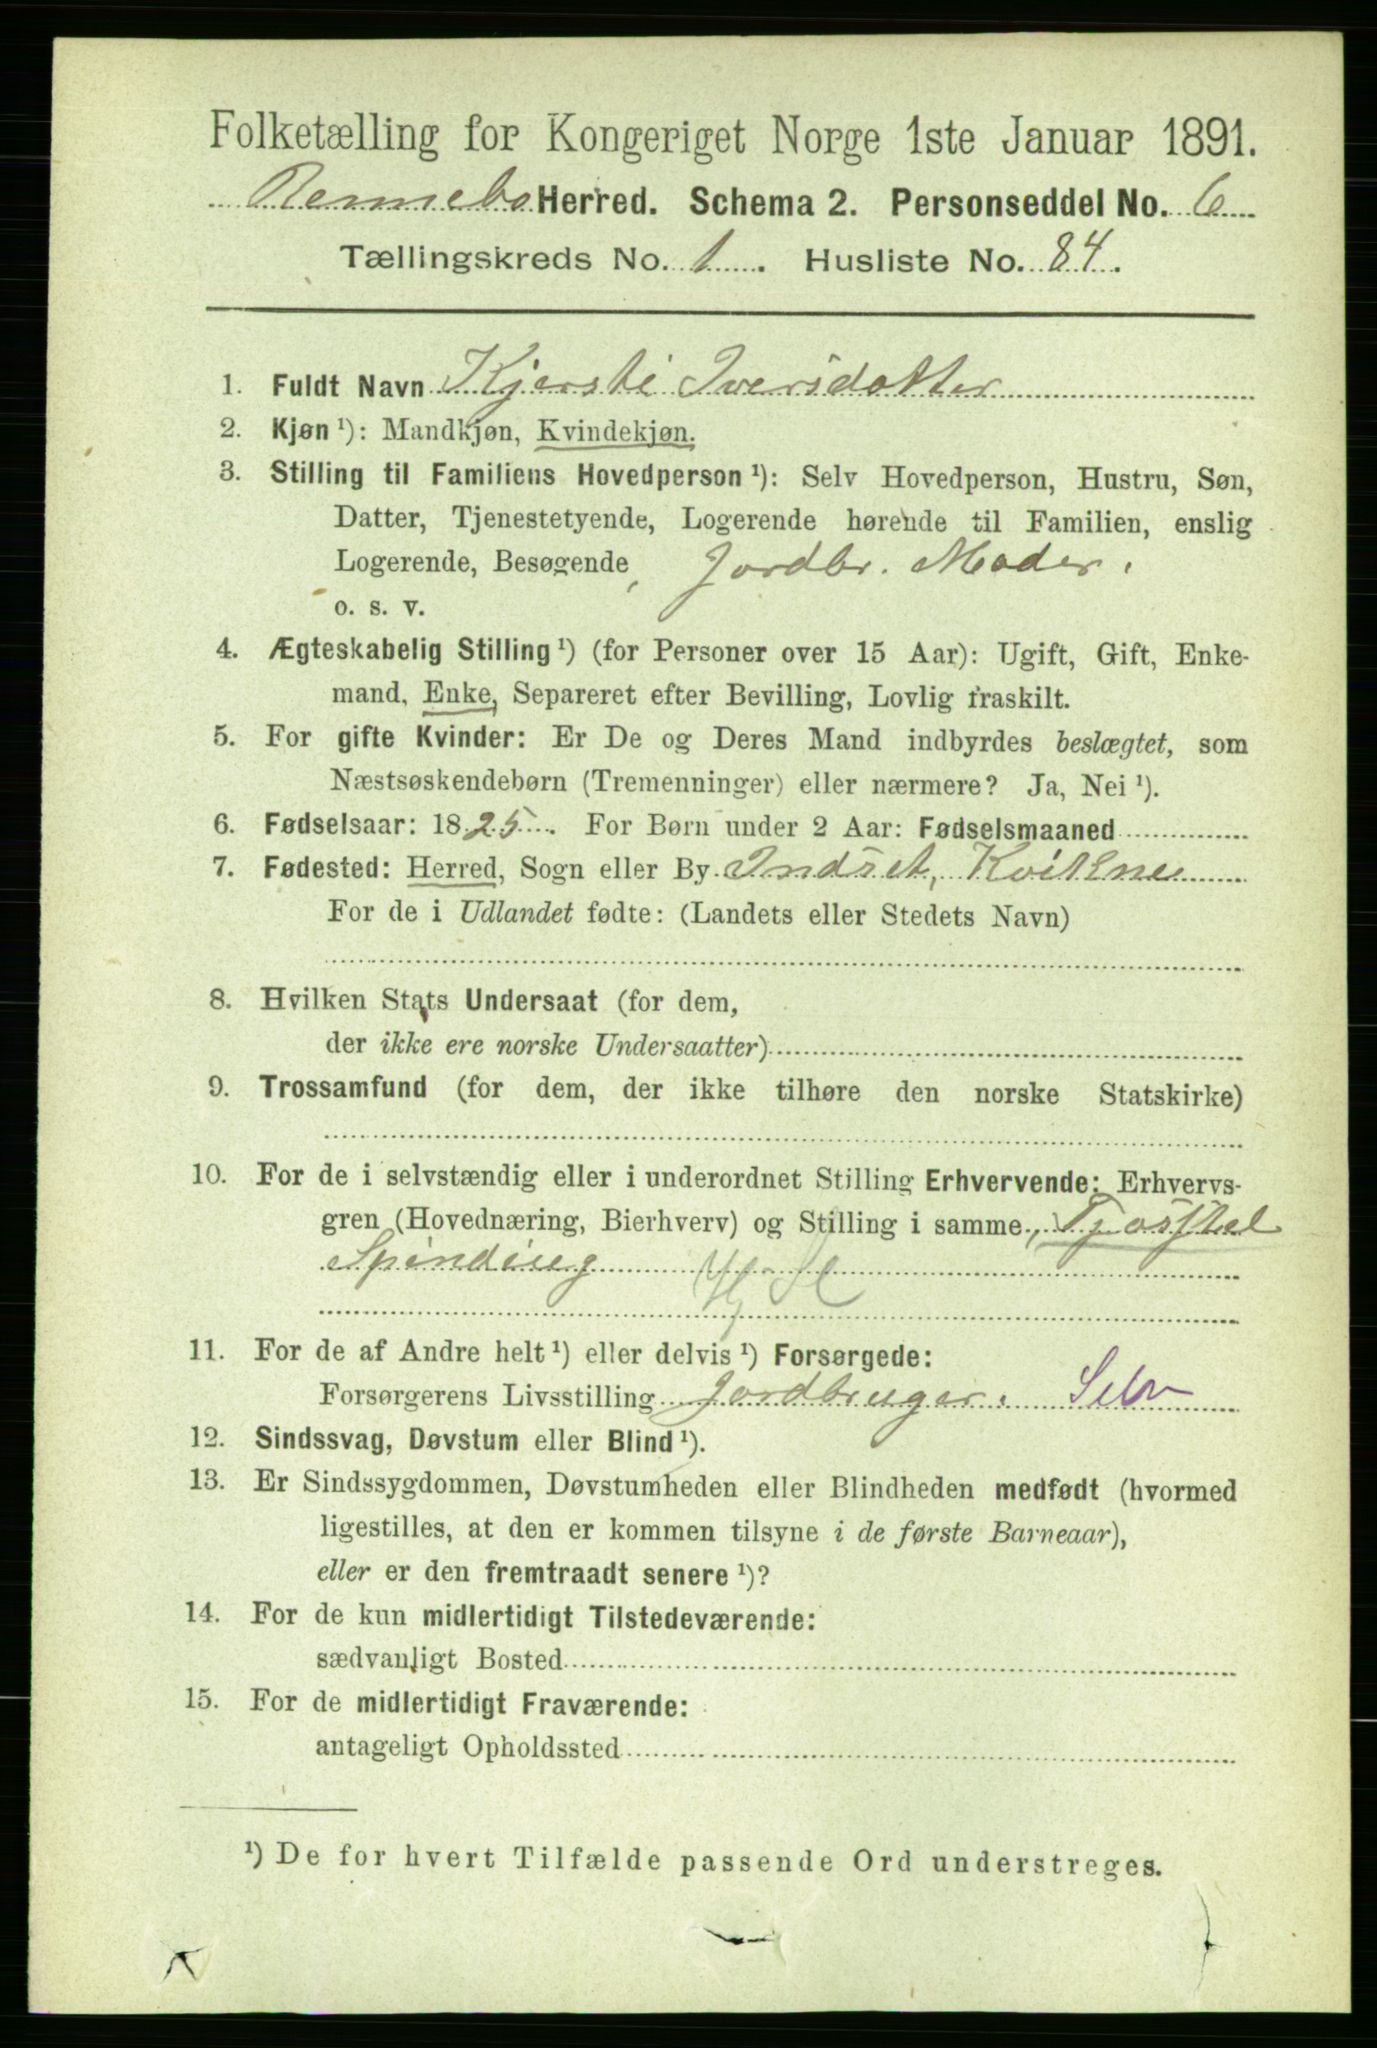 Folketælling for Kongeriget Norge 1ste Januar 1891.
Rennebo Herred. Schema 2. Personseddel No. 6
Tællingskreds No. 1. Husliste No. 84.
1. Fuldt Navn Kjersti Iversdatter
2. Kjøn ¹): Mandkjøn, Kvindekjøn.
3. Stilling til Familiens Hovedperson ¹): Selv Hovedperson, Hustru, Søn,
Datter, Tjenestetyende, Logerende hørende til Familien, enslig
Logerende, Besøgende, Jordbr. Moder.
o. s. v.
4. Ægteskabelig Stilling ¹) (for Personer over 15 Aar): Ugift, Gift, Enke-
mand, Enke, Separeret efter Bevilling, Lovlig fraskilt.
5. For gifte Kvinder: Er De og Deres Mand indbyrdes beslægtet, som
Næstsøskendebørn (Tremenninger) eller nærmere? Ja, Nei ¹).
6. Fødselsaar: 1825. For Børn under 2 Aar: Fødselsmaaned
7. Fødested: Herred, Sogn eller By Indset, Kvikne
For de i Udlandet fødte: (Landets eller Stedets Navn)
8. Hvilken Stats Undersaat (for dem,
der ikke ere norske Undersaatter)
9. Trossamfund (for dem, der ikke tilhøre den norske Statskirke)
10. For de i selvstændig eller i underordnet Stilling Erhvervende: Erhvervs-
gren (Hovednæring, Bierhverv) og Stilling i samme,
Spinding
11. For de af Andre helt ¹) eller delvis ¹) Forsørgede:
Forsørgerens Livsstilling Jordbruger. Selv
12. Sindssvag, Døvstum eller Blind ¹).
13. Er Sindssygdommen, Døvstumheden eller Blindheden medfødt (hvormed
ligestilles, at den er kommen tilsyne i de første Barneaar),
eller er den fremtraadt senere ¹)?
14. For de kun midlertidigt Tilstedeværende:
sædvanligt Bosted
15. For de midlertidigt Fraværende:
antageligt Opholdssted
¹) De for hvert Tilfælde passende Ord understreges.